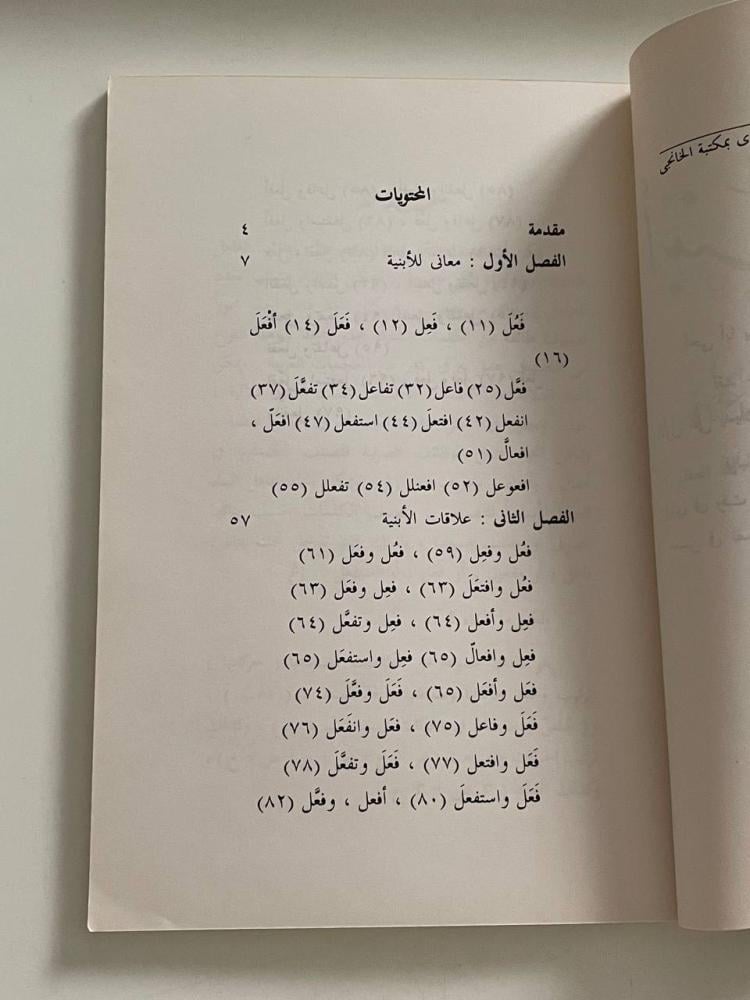 ى بمكتبة الخانجى
المحتويات
مقدمة ٤
الفصل الأول : معانى للأبنية ٧
فَعُلَ (١١) ، فَعِل (١٢) ، فَعَلَ (١٤) أفْعَلَ
(١٦)
فعَّل (٢٥) فاعل (٣٢) تفاعل (٣٤) تفعَّلَ (٣٧)
انفعل (٤٢) افتعلَ (٤٤) استفعل (٤٧) افعَلّ ،
افعالَّ (٥١)
افعوعل (٥٢) افعنلل (٥٤) تفعلل (٥٥)
الفصل الثانى : علاقات الأبنية ٥٧
فعُل وفعِل (٥٩) ، فعُل وفعَل (٦١)
فعُل وافتعَلَ (٦٣) ، فعِل وفعَل (٦٣)
فعِل وأفعل (٦٤) ، فعِل وتفعَّل (٦٤)
فعِل وافعالّ (٦٥) فعِل واستفعَل (٦٥)
فعَل وأفعَل (٦٥) ، فَعَلَ وفعَّلَ (٧٤)
فَعَلَ وفاعل (٧٥) ، فعَل وانفَعَل (٧٦)
فَعَلَ وافتعل (٧٧) ، فَعَلَ وتفعَّلَ (٧٨)
فَعَلَ واستفعلَ (٨٠) ، أفعل ، وفعَّل (٨٢)